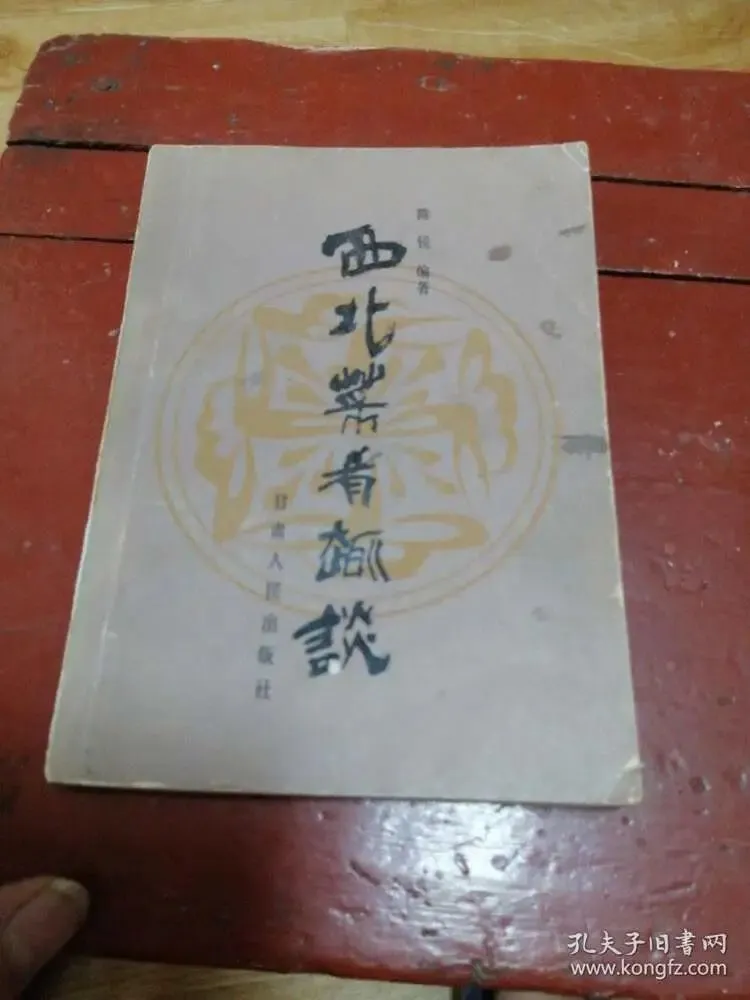 陈铙 编著
西北荤肴漫谈
甘肃人民出版社
孔夫子旧書网
www.kongfz.com